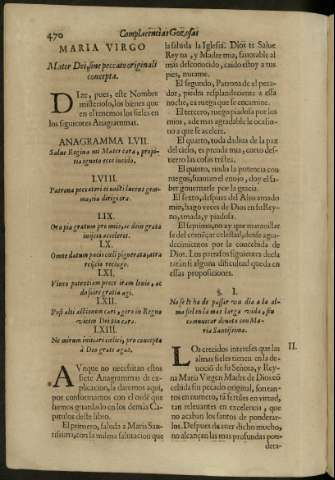 470
Complacencias Gozosas
MARIA VIRGO
Mater Dei, sine peccato originali
concepta.
DIze, pues, este Nombre
misterioso, los bienes que
en el tenemos los fieles en
los siguientes Anagrammas.
ANAGRAMMA LVII.
Salue Regina mi Mater cara, propi-
tia ignoto ecce incido.
LVIII.
Patrona peccatori et nocti lucens gran-
ma, via dirigitora.
LIX.
Oro pia gratum pro miis, ac dein grata
inijcta acceleret.
LX.
Omne datum pacis cœli pignerato, atra
reijcio reciugo.
LXI.
Vinco potentiam prece iram lenio, ac
do iure gratia agi.
LXII.
Post alti actionem cari, gero in Regno
vicem Dei pia cara.
LXIII.
Ne mirum imitare cœlici, pro concepta
à Deo grati ago.
AVnque no necessitan estos
siete Anagrammas de ex-
plicacion, la daremos aqui,
por conformarnos con el ordẽ que
hemos guardado en los demàs Ca-
pitulos deste libro.
El primero, saluda a Maria San-
tissima, con la misma salutacion que
la saluda la Iglesia: Dios te Salue
Reyna, y Madre mia, fauorable al
mas desconocido, caido estoy a tus
pies, mirame.
El segundo, Patrona de el peca-
dor, piedra resplandeciente a essa
noche, es ruego que se encamine.
El tercero, ruega piadosa por los
mios, ade mas agradable le ocasio-
na a que se acelere.
El quarto, toda dadiua de la paz
del cielo, es prenda mia, corto des-
tierro las cosas tristes.
El quinto, rinde la potencia con
ruegos, suauizo el enojo, doy el sa-
ber gouernarse por la gracia.
El sexto, despues del Alto amado
mio, hago vezes de Dios en su Rey-
no, amada, y piadosa.
El septimo, no ay que marauillar-
se del cortejar celestial, desde agra-
decimientos por la concebida de
Dios. Los parrafos siguientes decla-
ràn si alguna dificultad queda en
essas proposiciones.
§. I.
No se ha de passar vn dia a la al-
ma fiel en la mas larga vida, sin
comunicar deuota con Ma-
ria Santissima.
LOs crecidos intereses que las
almas fieles tienen en la de-
uocion de su Señora, y Rey-
na Maria Virgen Madre de Dios cõ-
cebida sin pecado original, son tan-
tos en numero, tã fertiles en virtud,
tan releuantes en excelencia, que
no acaban los santos de ponderar-
los. Despues de auer dicho mucho,
no alcançan las mas profundas pon-
dera-
II.